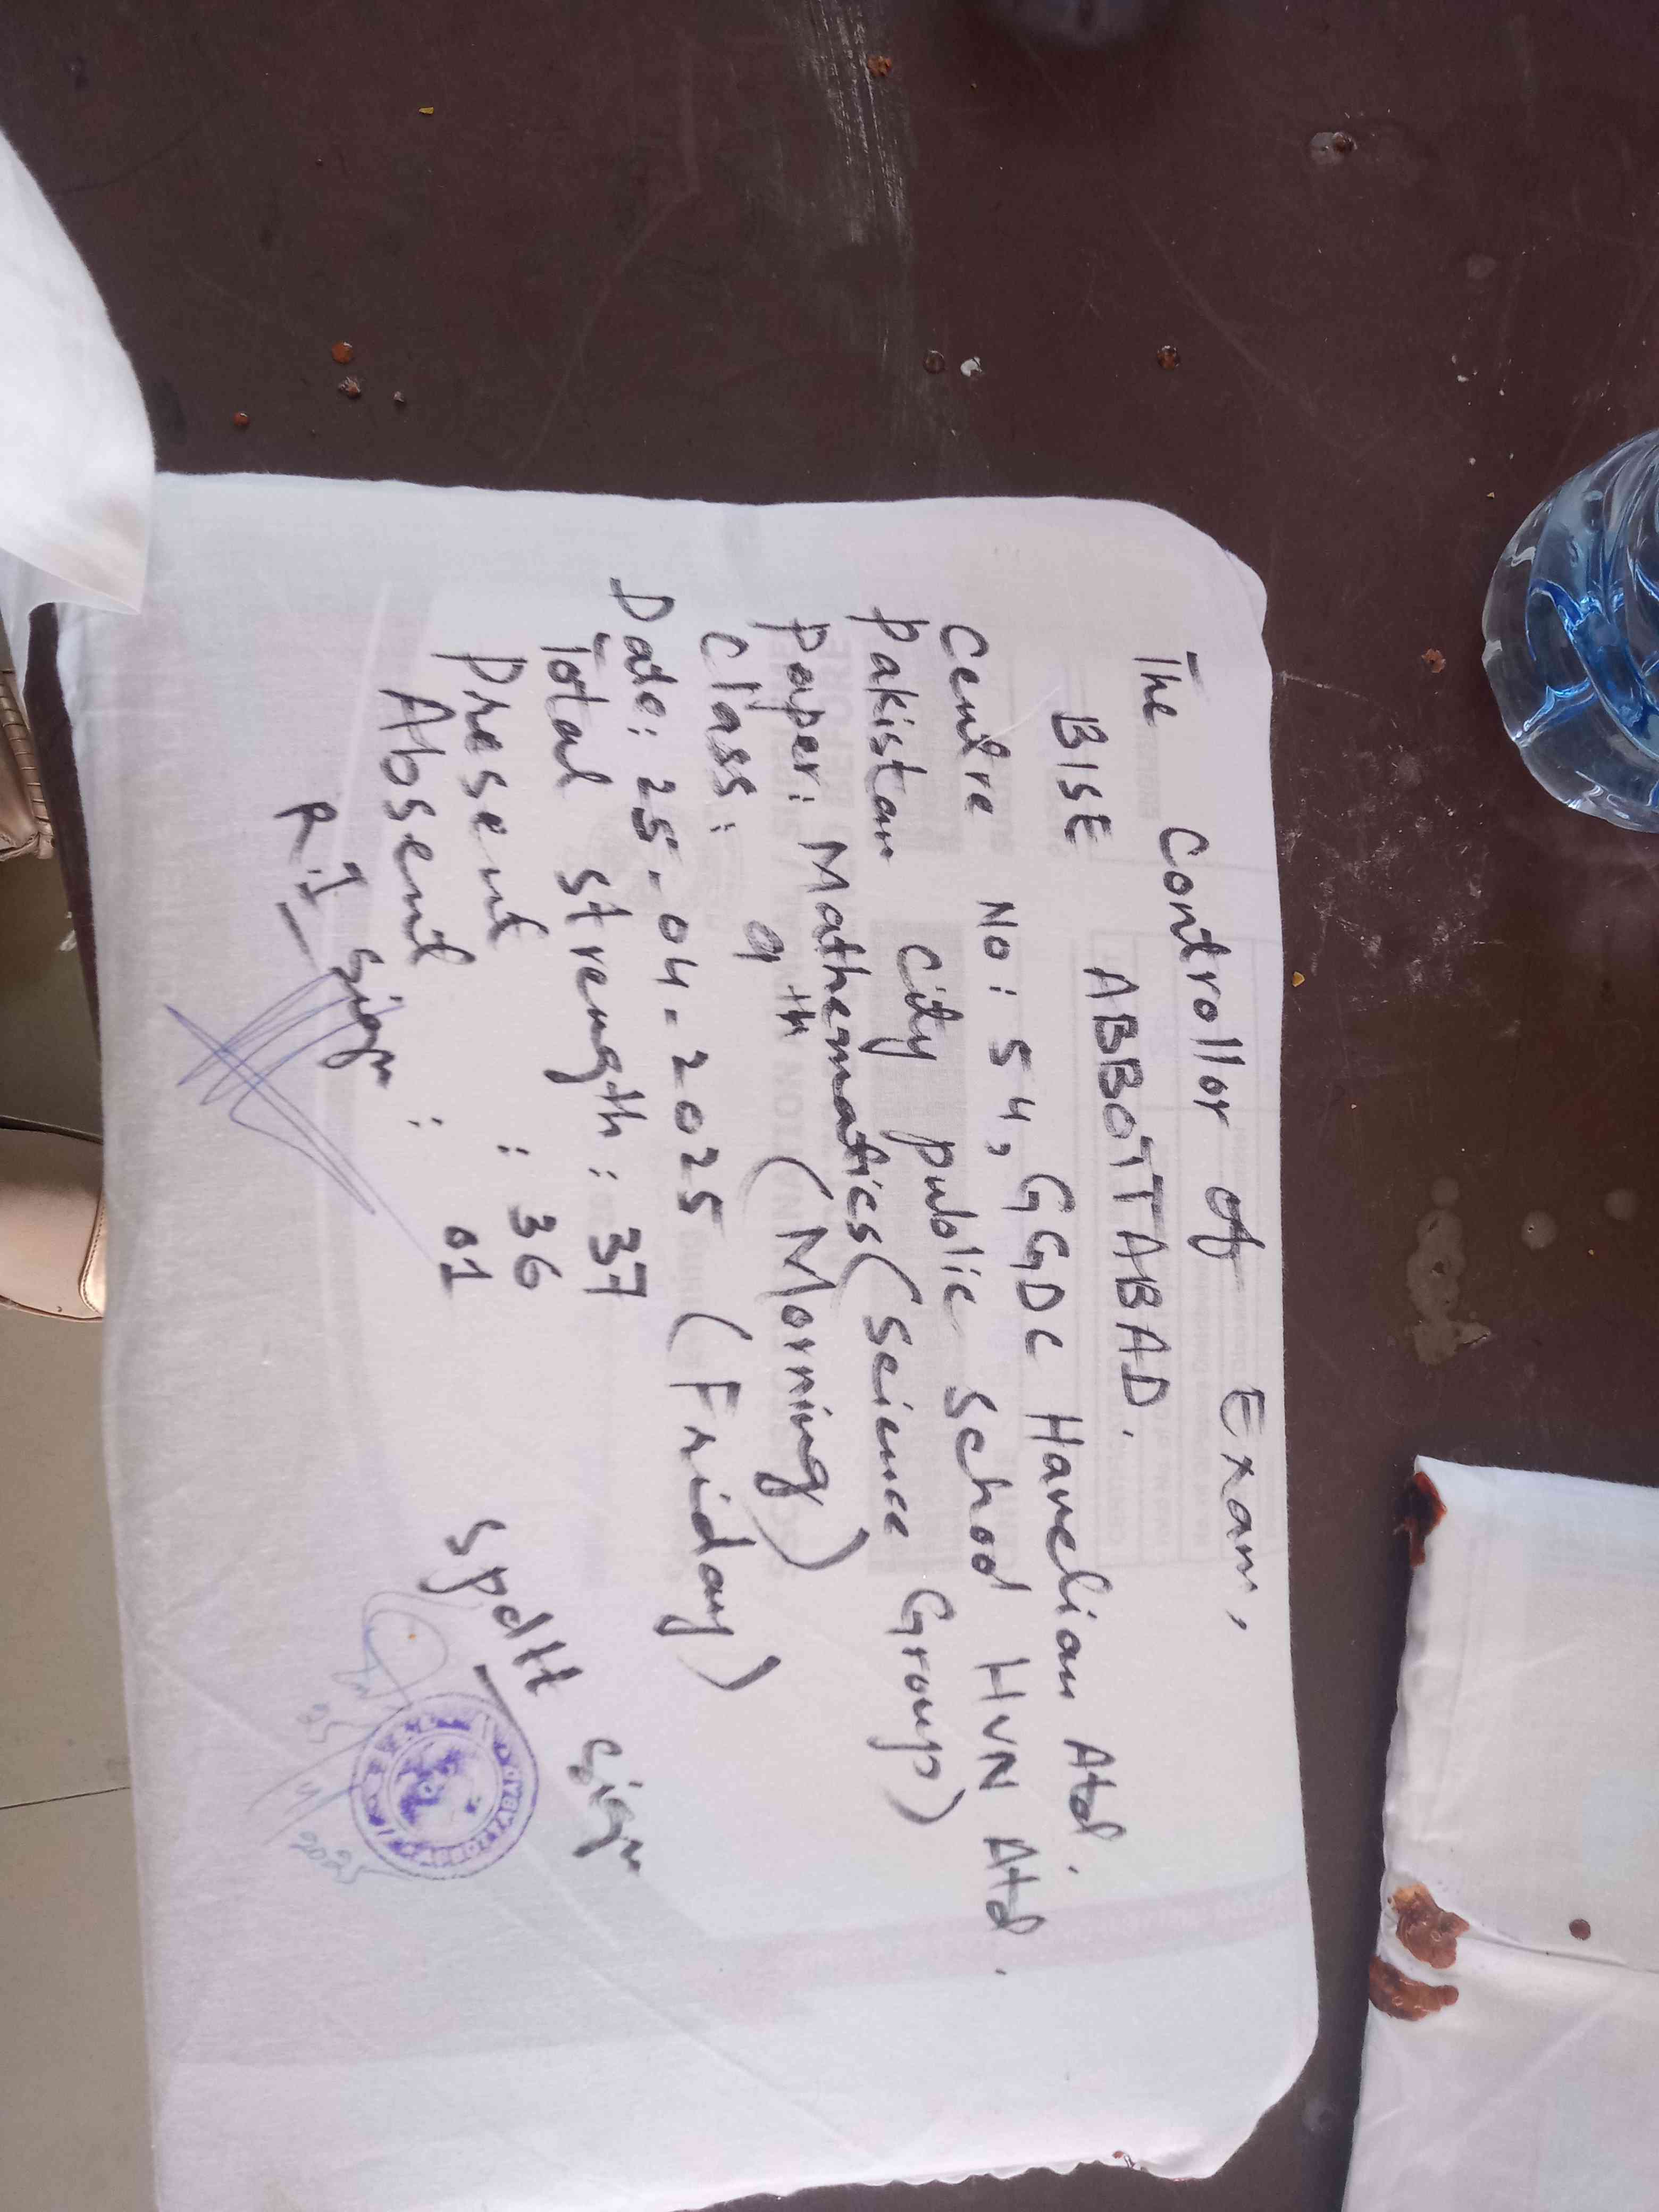 The Controllor of Exam,
BISE ABBOTTABAD.
Centre No: 54, GGDC Havelian Atd.
Pakistan City public School HVN Atd.
paper: Mathematics (Science Group)
Class: 9th (Morning)
Date: 25-04-2025 (Friday)
Total Strength: 37
Present : 36
Absent : 01
R.I Sign
Spdtt Sign
ABBOTTABAD
2025